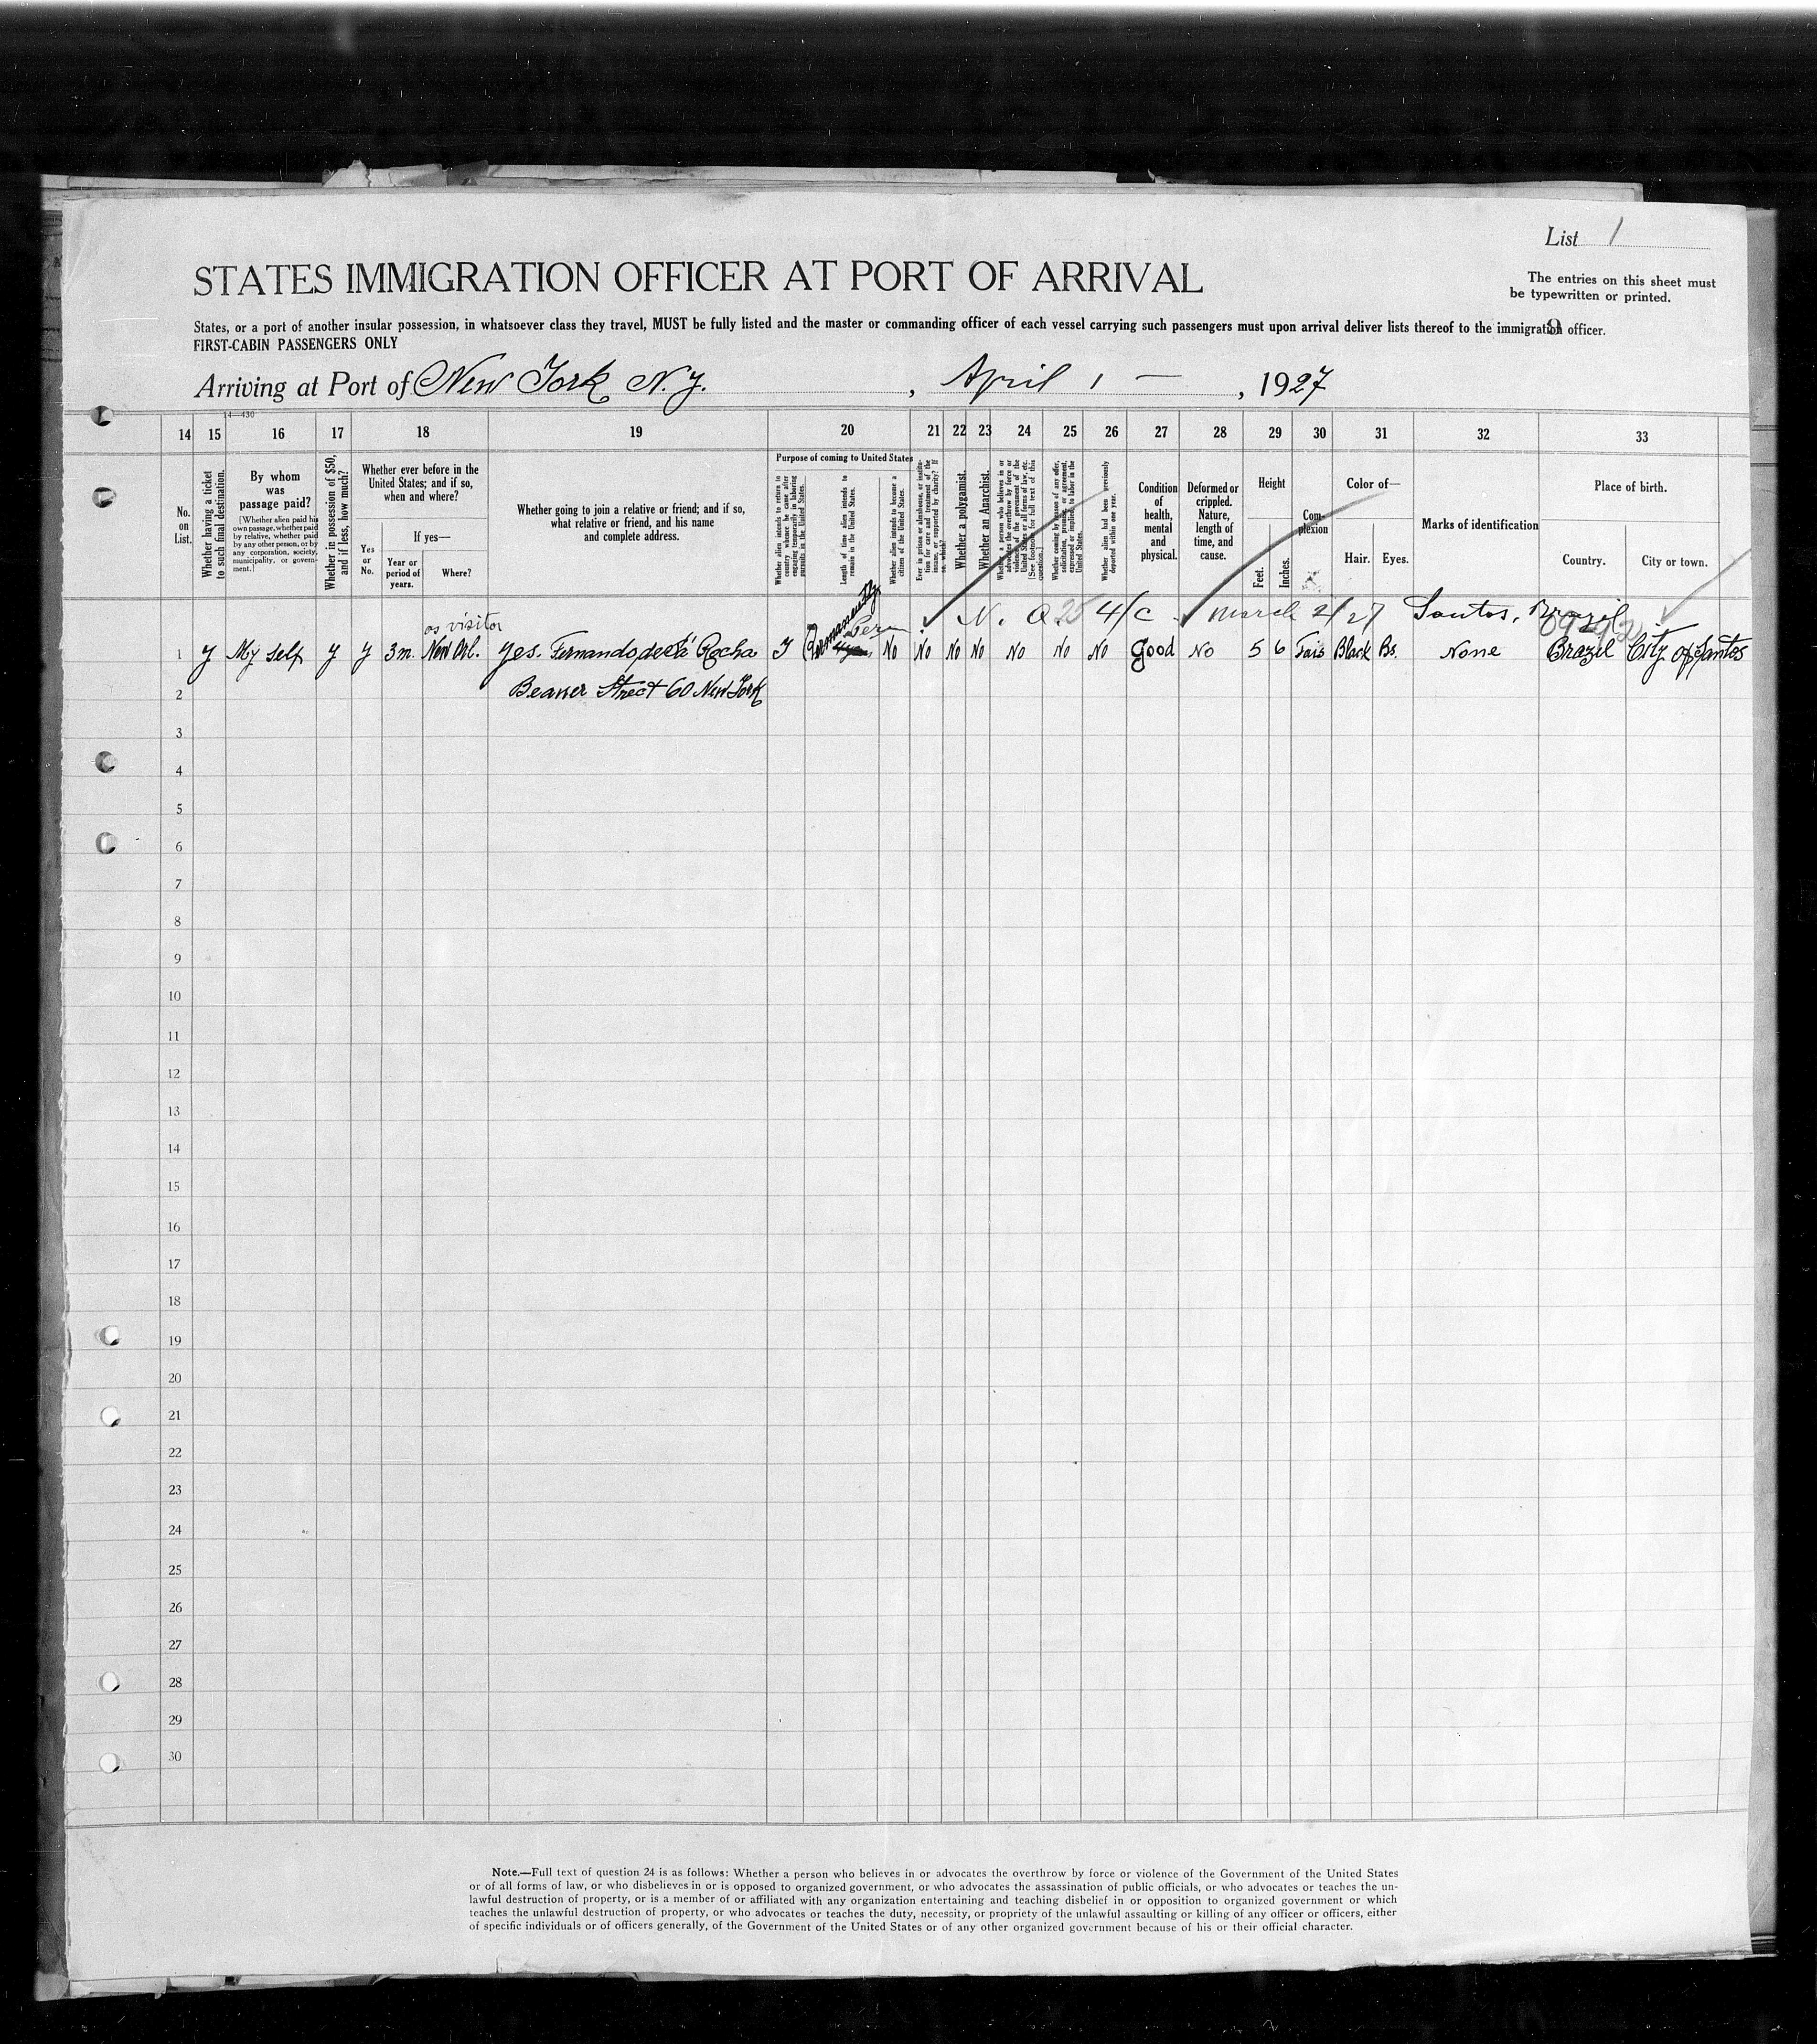 List 1
STATES IMMIGRATION OFFICER AT PORT OF ARRIVAL
The entries on this sheet must
be typewritten or printed.
States, or a port of another insular possession, in whatsoever class they travel, MUST be fully listed and the master or commanding officer of each vessel carrying such passengers must upon arrival deliver lists thereof to the immigration officer.
FIRST-CABIN PASSENGERS ONLY
Arriving at Port of New York N.Y. , April 1 — , 1927
14—430
14 15 16 17 18 19 20 21 22 23 24 25 26 27 28 29 30 31 32 33
No. on List.
Whether having a ticket to such final destination.
By whom was passage paid?
[Whether alien paid his own passage, whether paid by relative, whether paid by any other person, or by any corporation, society, municipality, or government.]
Whether in possession of $50, and if less, how much?
Whether ever before in the United States; and if so, when and where?
Yes or No.
If yes—
Year or period of years.
Where?
Whether going to join a relative or friend; and if so, what relative or friend, and his name and complete address.
Purpose of coming to United States
Whether alien intends to return to country whence he came after engaging temporarily in laboring pursuits in the United States.
Length of time alien intends to remain in the United States.
Whether alien intends to become a citizen of the United States.
Ever in prison or almshouse, or institution for care and treatment of the insane, or supported by charity? If so, which?
Whether a polygamist.
Whether an Anarchist.
Whether a person who believes in or advocates the overthrow by force or violence of the government of the United States or all forms of law, etc. [See footnote for full text of this question.]
Whether coming by reason of any offer, solicitation, promise, or agreement, expressed or implied, to labor in the United States.
Whether alien had been previously deported within one year.
Condition of health, mental and physical.
Deformed or crippled. Nature, length of time, and cause.
Height
Feet.
Inches.
Complexion
Color of—
Hair.
Eyes.
Marks of identification
Place of birth.
Country.
City or town.
N. Q. 25 4/c March 2/27 Santos, Brazil
as visitor
Permanently
1 y My self y y 3 m. New Orl. yes. Fernando de la Rocha Y No No No No No No No good No 5 6 Fair Black Br. None Brazil City of Santos
2 Beaver Street 60 New York
3
4
5
6
7
8
9
10
11
12
13
14
15
16
17
18
19
20
21
22
23
24
25
26
27
28
29
30
Note.—Full text of question 24 is as follows: Whether a person who believes in or advocates the overthrow by force or violence of the Government of the United States
or of all forms of law, or who disbelieves in or is opposed to organized government, or who advocates the assassination of public officials, or who advocates or teaches the un-
lawful destruction of property, or is a member of or affiliated with any organization entertaining and teaching disbelief in or opposition to organized government or which
teaches the unlawful destruction of property, or who advocates or teaches the duty, necessity, or propriety of the unlawful assaulting or killing of any officer or officers, either
of specific individuals or of officers generally, of the Government of the United States or of any other organized government because of his or their official character.